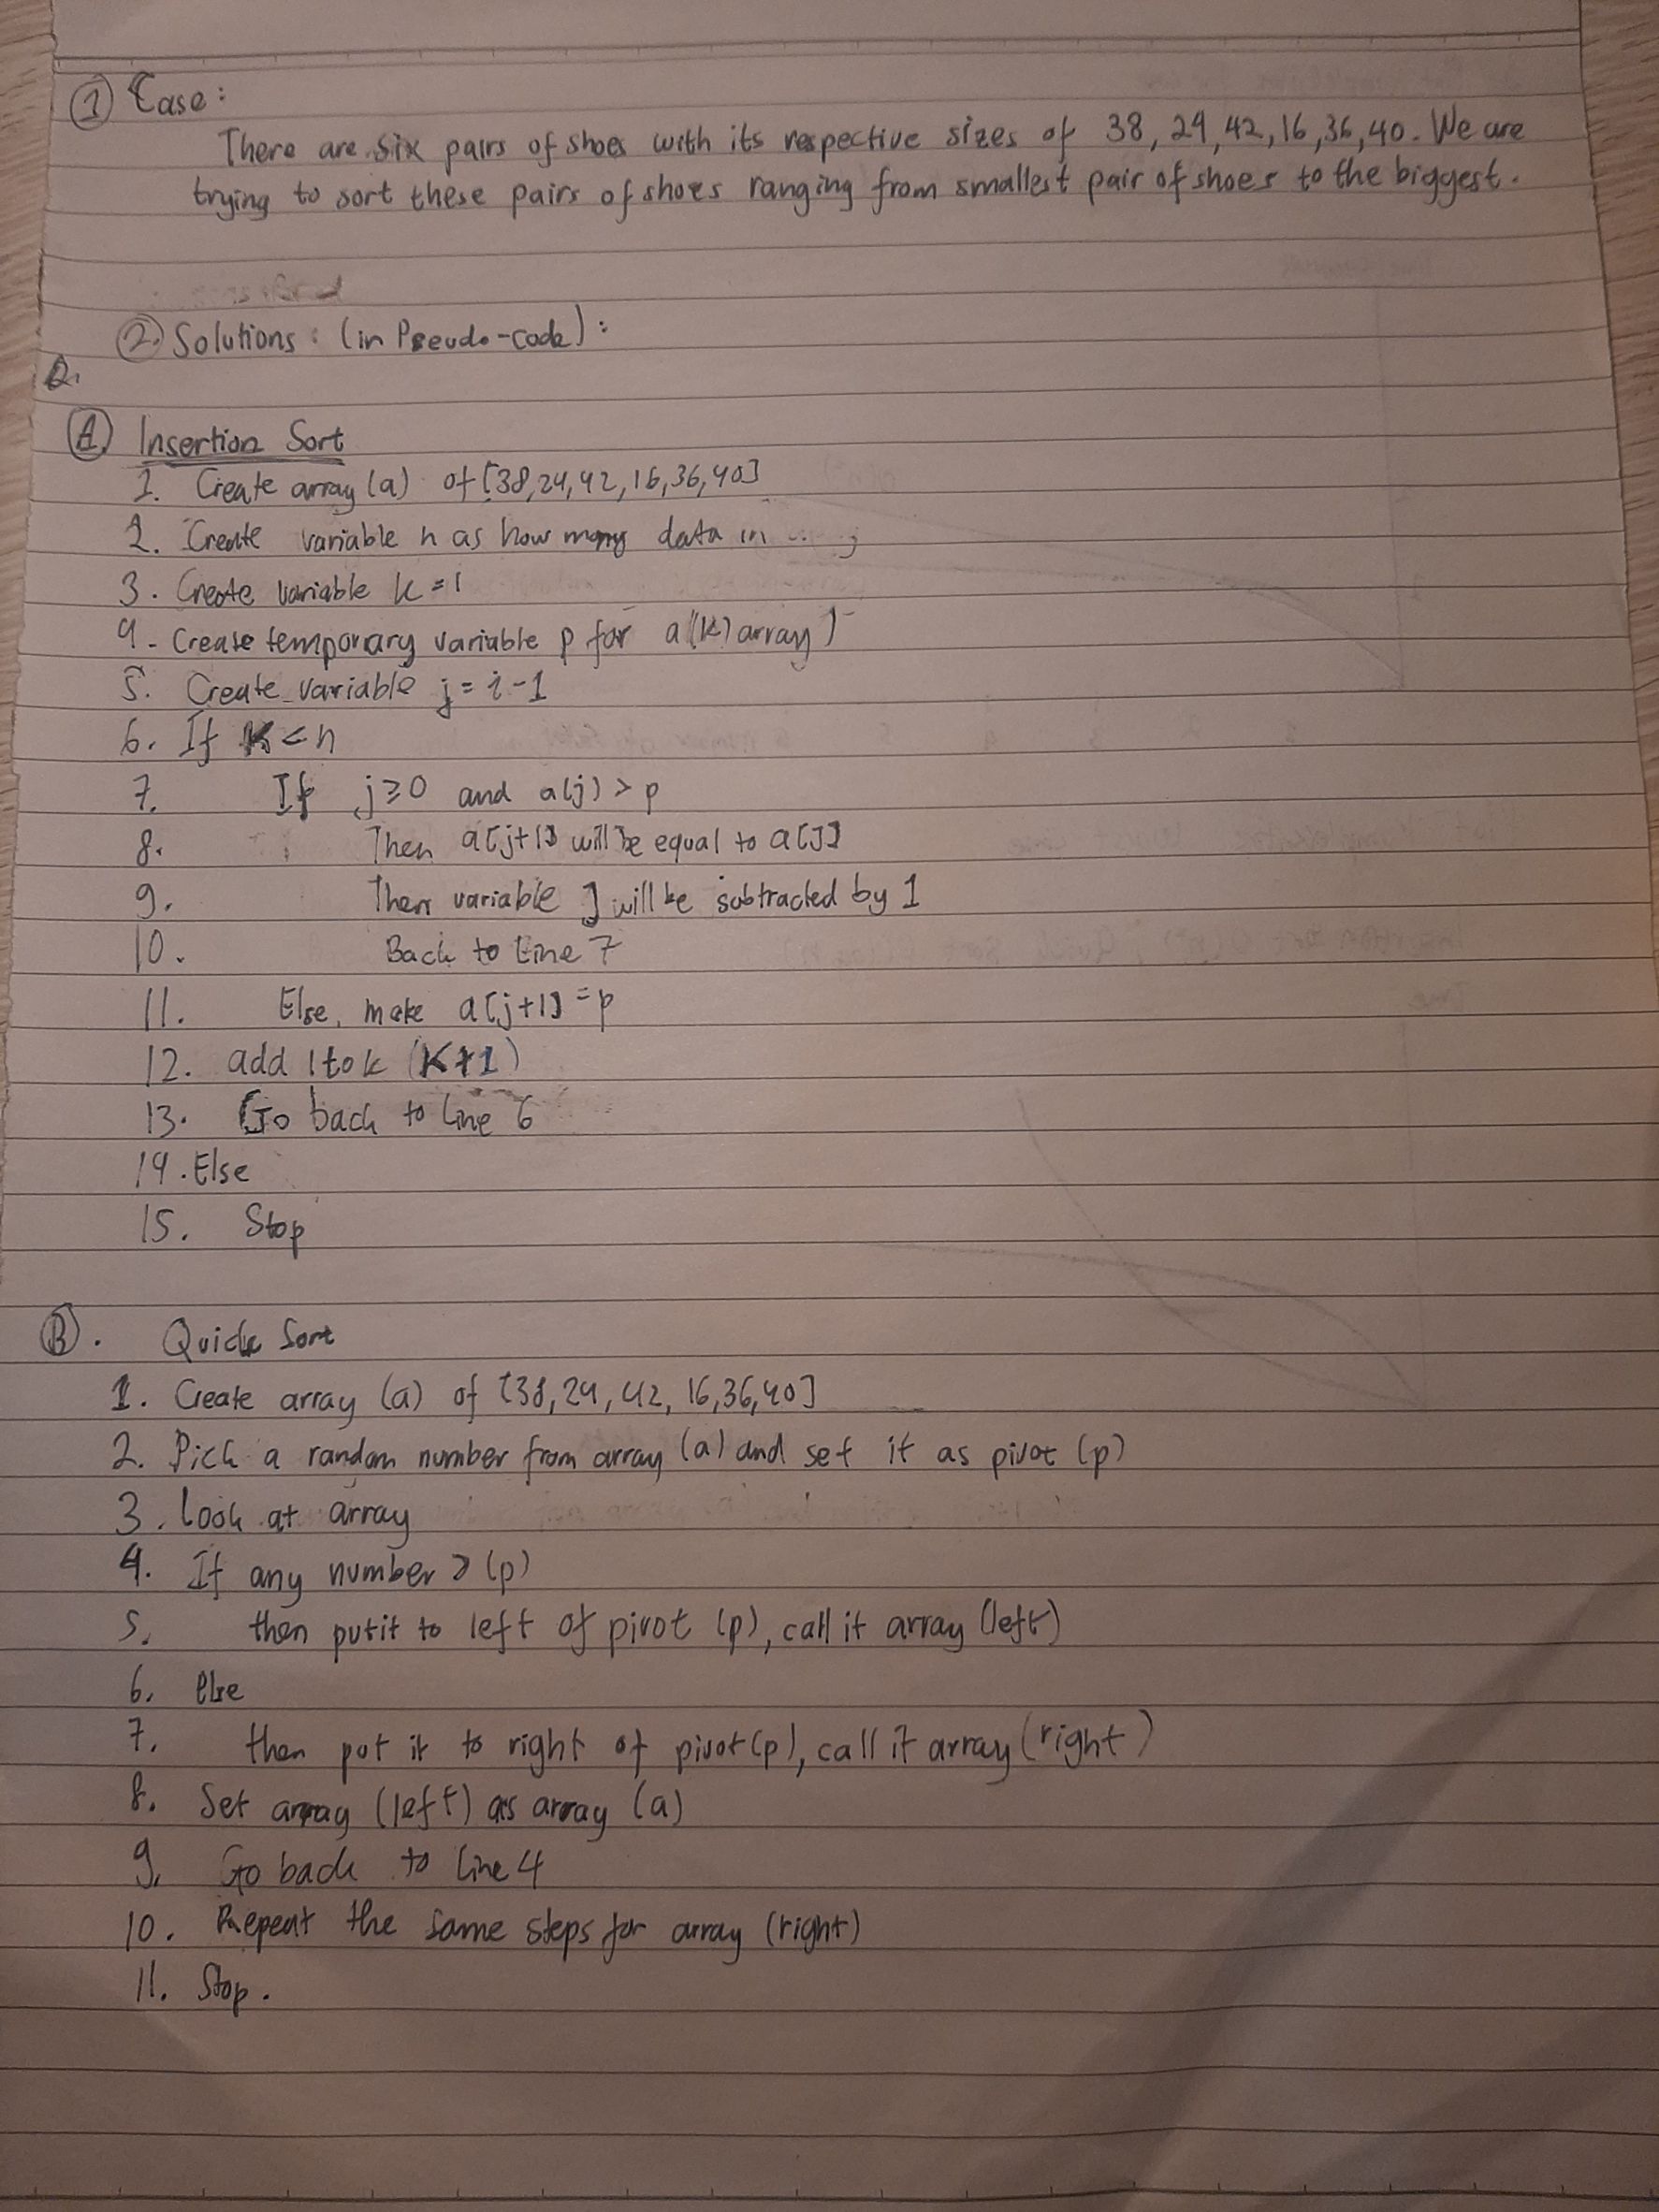 ① Case:
There are six pairs of shoes with its respective sizes of 38, 24, 42, 16, 36, 40. We are
trying to sort these pairs of shoes ranging from smallest pair of shoes to the biggest.
② Solutions: (in Pseudo-code):
Ⓐ Insertion Sort
1. Create array (a) of [38,24,42,16,36,40]
2. Create variable n as how many data in
3. Create variable k = 1
4. Create temporary variable p for a (k) array)
5. Create variable j = i - 1
6. If k < n
7. If j ≥ 0 and a(j) > p
8. Then a[j+1] will be equal to a[J]
9. Then variable J will be subtracted by 1
10. Back to Line 7
11. Else, make a[j+1] = p
12. add 1 to k (K+1)
13. Go back to line 6
14. Else
15. Stop
Ⓑ. Quick Sort
1. Create array (a) of [38,24,42,16,36,40]
2. Pick a random number from array (a) and set it as pivot (p)
3. Look at array
4. If any number > (p)
5. then put it to left of pivot (p), call it array (left)
6. else
7. then put it to right of pivot (p), call it array (right)
8. Set array (left) as array (a)
9. Go back to line 4
10. Repeat the same steps for array (right)
11. Stop.